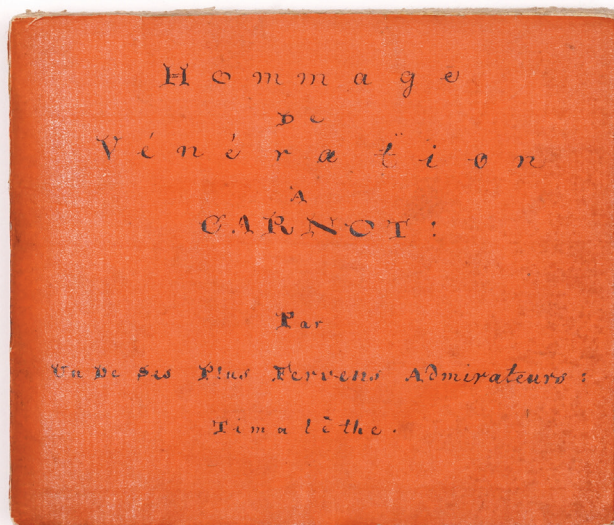 Hommage
De
Vénération
A
CARNOT:
Par
Un De Ses Plus Fervens Admirateurs:
Timalêthe.